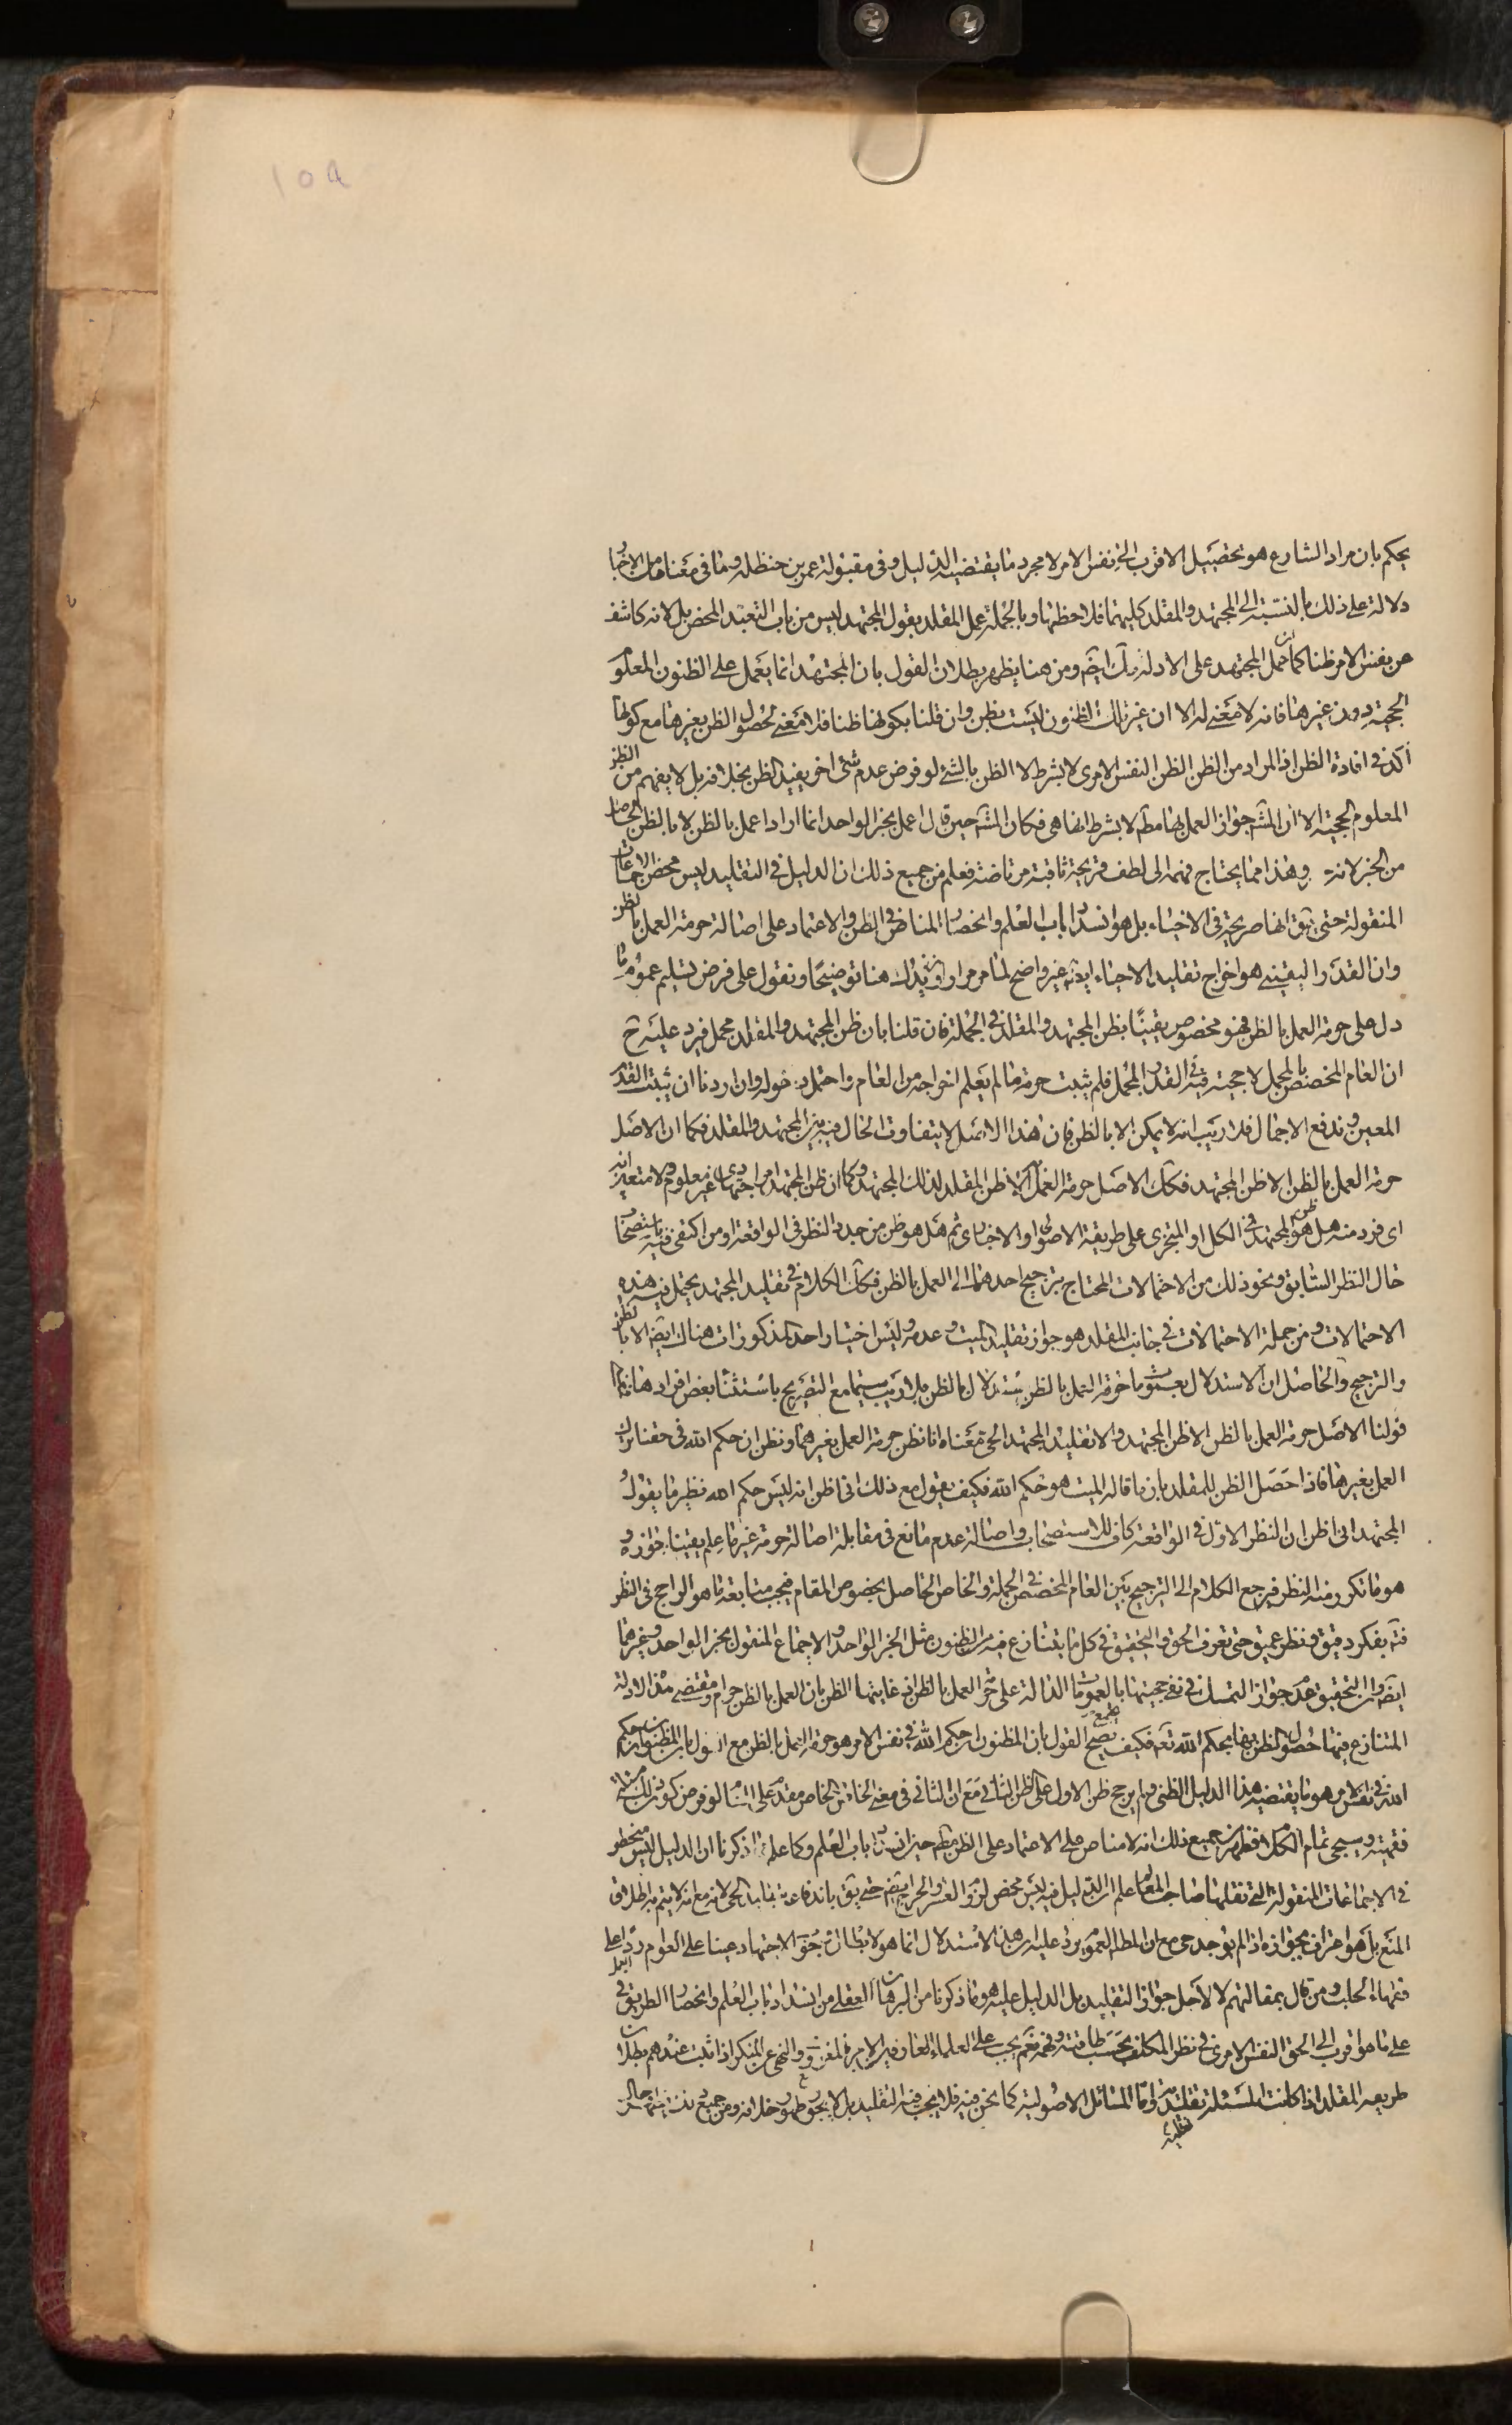 ١٥٩
يحكم بان مراد الشارع هو تحصيل الاقرب الى نفس الامر لا مجرد ما يقتضيه الدليل وفى مقبولة عمر بن حنظله وما فى معناها من الاخبار
دلالة على ذلك بالنسبة الى المجتهد والمقلد كليهما فلاحظها وبالجملة عمل المقلد بقول المجتهد ليس من باب التعبد المحض بل لانه كاشف
عن نفس الامر ظنا كما ان عمل المجتهد على الادلة كك ايضا ومن هنا يظهر بطلان القول بان المجتهد انما يعمل على الظنون المعلومة
الحجية دون غيرها فانه لا معنى له الا ان غير تلك الظنون ليست بظن وان قلنا بكونها ظنا فلا معنى لحصول الظن بغيرها مع كونها
اكد فى افادة الظن اذ المراد من الظن الظن النفس الامرى لا بشرط لا الظن بالشئ لو فرض عدم شئ اخر يفيد الظن بخلافه بل لا يفهم من الظن
المعلوم الحجية الا ان المش جواز العمل بها مط لا بشرط انها هى فكان المش حين قال اعمل بخبر الواحد انما اراد اعمل بالظن لا بالظن الحاصل
من الخبر لانه وهذا مما يحتاج فهمه الى لطف قريحة ثاقبة مرتاضة فعلم من جميع ذلك ان الدليل فى التقليد ليس محض الاجماعات
المنقولة حتى يق انها صريحة فى الاحياء بل هو انسداد باب العلم وانحصار المناص فى الظن والاعتماد على اصالة حرمة العمل بالظن
وان القدر اليقينى هو اخراج تقليد الاحياء ايضا غير واضح لما مر مرارا ونزيدك هنا توضيحا ونقول على فرض تسليم عموم ما
دل على حرمة العمل بالظن فهو مخصوص يقينا بظن المجتهد والمقلد فى الجملة فان قلنا بان ظن المجتهد والمقلد مجمل فيرد عليه ح
ان العام المخصص بالمجمل لا حجية فيه فى القدر المجمل فلم يثبت حرمة ما لم يعلم اخراجه من العام واحتمل دخوله وان اردنا ان نثبت القدر
المعين وندفع الاجمال فلا ريب انه لا يمكن الا بالظن فان هذا الاصل لا يتفاوت الحال فيه بين المجتهد والمقلد فكما ان الاصل
حرمة العمل بالظن الا ظن المجتهد فكك الاصل حرمة العمل الا ظن المقلد لذلك المجتهد وكما ان ظن المجتهد امر اجتهادى غير معلوم ولا متعين انه
اى فرد منه هل هو ظن المجتهد فى الكل او المتجزى على طريقة الاصولى او الاخبارى ثم هل هو ظن من جدد النظر فى الواقعة او من اكتفى فيه باستصحاب
حال النظر السابق ونحو ذلك من الاحتمالات المحتاج ترجيح احدهما الى العمل بالظن فكك الكلام فى تقليد المجتهد يحتمل فيه هذه
الاحتمالات ومن جملة الاحتمالات فى جانب المقلد هو جواز تقليد الميت وعدمه وليس اختيار احد المذكورات هناك ايضا الا بالظن
والترجيح والحاصل ان الاستدلال بعموم حرمة العمل بالظن استدلال بالظن بلا ريب سيما مع التصريح باستثناء بعض افرادها
قولنا الاصل حرمة العمل بالظن الا ظن المجتهد والا تقليد المجتهد الحى معناه انا نظن حرمة العمل بغيرهما ونظن ان حكم الله فى حقنا ترك
العمل بغيرها فاذا حصل الظن للمقلد بان ما قاله الميت هو حكم الله فكيف يقول مع ذلك انى اظن انه ليس حكم الله نظير ما يقول
المجتهد انى اظن ان النظر الاول فى الواقعة كاف للاستصحاب واصالة عدم مانع فى مقابلة اصالة حرمة غير ما علم يقينا جوازه و
هو ما تكرر منه النظر فيرجع الكلام الى الترجيح بين العام المخصص فى الجملة والخاص الحاصل بخصوص المقام فيجب متابعة ما هو الراجح فى النظر
فتدبر بفكر دقيق ونظر عميق حتى تعرف الحق والتحقيق فى كل ما يتنازع فيه من الظنون مثل الخبر الواحد والاجماع المنقول بخبر الواحد وغيرهما
ايضا وان التحقيق عدم جواز التمسك فى نفى حجيتها بالعمومات الدالة على حرمة العمل بالظن فان غايتها الظن بان العمل بالظن حرام ومقتضى هذه الادلة
المتنازع فيها حصول الظن بها بحكم الله تعه فكيف يصح القول بان المظنون ان حكم الله فى نفس الامر هو حرمة العمل بالظن مع القول بان المظنون ان حكم
الله فى نفس الامر هو ما يقتضيه هذا الدليل الظنى ولم يرجح ظن الاول على ظن الثانى مع ان الثانى فى معنى الخاص والخاص مقدم على العام لو فرض كون ذلك
وسيجئ تمام الكلام فظهر من جميع ذلك انه لا مناص على الاعتماد على الظن مط حين انسداد باب العلم وكما علم مما ذكرنا ان الدليل ليس منحصرا
فى الاجماعات المنقولة التى نقلها صاحب المعالم علم ان الدليل فيه ليس محض لزوم العسر والحرج ايضا حتى يق باندفاعه بتقليد الحى لانه مع انه لا يتم بها اطلاق
المنع بل هو اعتراف بجوازه اذا لم يوجد حى مع ان المط العموم يرد عليه ان هذا الاستدلال انما هو لابطال وجوب الاجتهاد عينا على العوام ردا على
فقهاء الحلب ومن قال بمقالتهم لا لاجل جواز التقليد بل الدليل عليه هو ما ذكرنا من البرهان العقلى من انسداد باب العلم وانحصار الطريق فى العمل
على ما هو اقرب الى الحق النفس الامرى فى نظر المكلف بحسب طاقته وفهمه نعم يجب على العلماء العارفين الامر بالمعروف والنهى عن المنكر اذا ثبت عندهم بطلان
طريقة المقلد اذا كانت المسئلة تقليدية واما المسائل الاصولية كما نحن فيه فلا يجب فيه التقليد بل لا يجوز مع ظهور خلافه ومن جميع ذلك